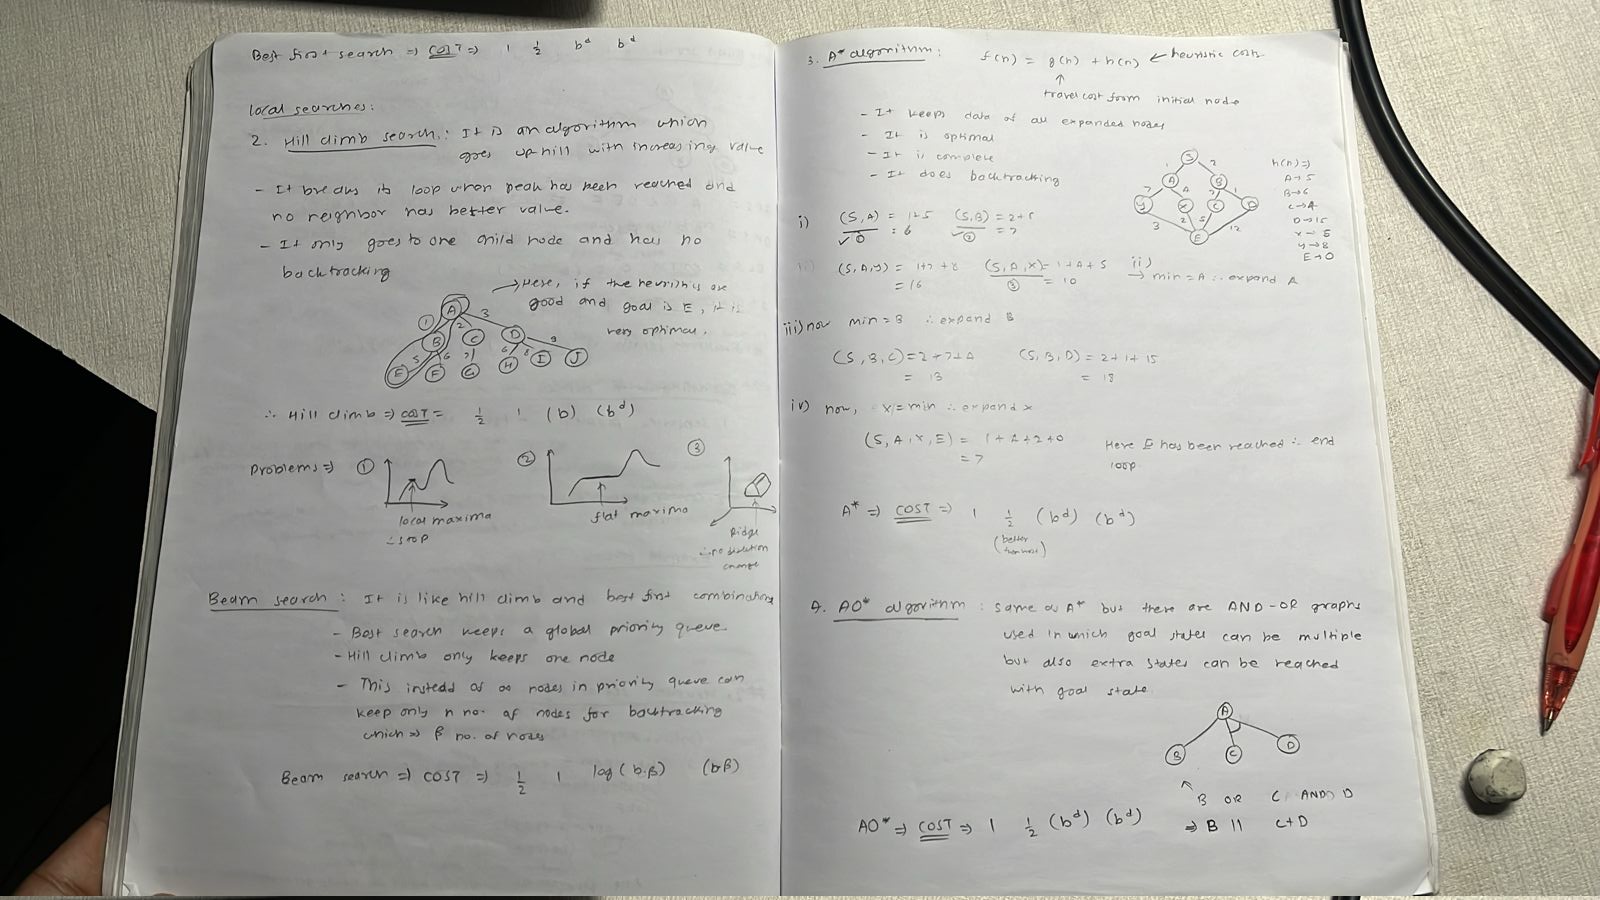 Best first search ⇒ COST ⇒ 1 ½ b^d b^d
local searches:
2. Hill climb search: It is an algorithm which
goes uphill with increasing value
- It breaks its loop when peak has been reached and
no neighbor has better value.
- It only goes to one child node and has no
backtracking
→ Here, if the heuristics are
good and goal is E, it is
very optimal.
A
1 2 3
B C D
5 6 7 6 8 9
E F G H I J
∴ Hill climb ⇒ COST = ½ 1 (b) (b^d)
Problems ⇒ ① ② ③
local maxima
∴ stop
flat maxima
Ridge
∴ no direction
change
Beam search: It is like hill climb and best first combination
- Best search keeps a global priority queue
- Hill climb only keeps one node
- This instead of ∞ nodes in priority queue can
keep only n no. of nodes for backtracking
which ⇒ β no. of nodes
Beam search ⇒ COST ⇒ ½ 1 log(b.β) (bβ)
3. A* algorithm: f(n) = g(n) + h(n) ← heuristic cost
↑
travel cost from initial node
- It keeps data of all expanded nodes
- It is optimal
- It is complete
- It does backtracking
S
1 2
A B
7 4 7 1
Y X C D
3 2 5 12
E
h(n) ⇒
A→5
B→6
C→4
D→15
X→5
Y→8
E→0
i) (S,A) = 1+5 (S,B) = 2+
= 6 = 7
✓① ✓②
(S,A,Y) = 1+7+8 (S,A,X) = 1+4+5 ii)
= 16 ③ = 10 → min = A ∴ expand A
iii) now min = B ∴ expand B
(S,B,C) = 2+7+4 (S,B,D) = 2+1+15
= 13 = 18
iv) now, X = min ∴ expand X
(S,A,X,E) = 1+4+2+0 Here E has been reached ∴ end
= 7 loop
A* ⇒ COST ⇒ 1 ½ (b^d) (b^d)
(better
than most)
4. AO* algorithm: same as A* but there are AND-OR graphs
used in which goal states can be multiple
but also extra states can be reached
with goal state
A
B C D
B OR C AND D
AO* ⇒ COST ⇒ 1 ½ (b^d) (b^d) ⇒ B || C+D